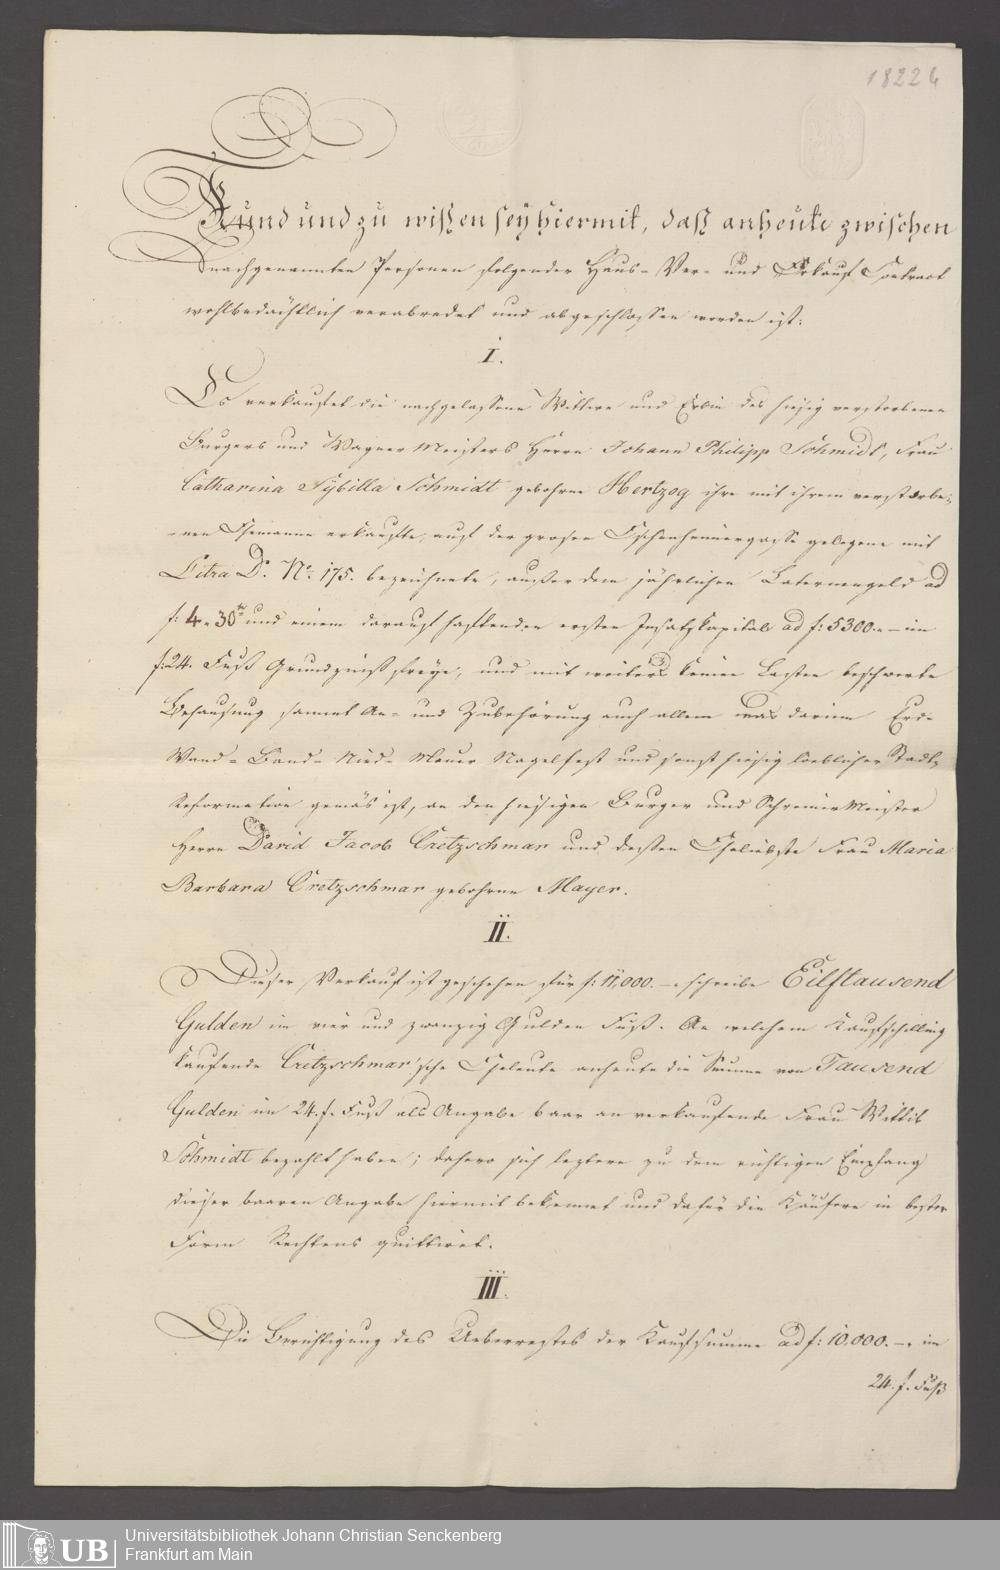 18226
Kund und zu wißen seÿ hiermit, daß anheute zwischen
nachgenannten Personen folgender Haus- Ver- und Erkauf Contract
wohlbedächtlich verabredet und abgeschlossen worden ist:
I.
Es verkaufet die nachgelassene Wittwe und Erbin des hiesig verstorbenen
Burgers und Wagner Meisters Herrn Johann Philipp Schmidt, Frau
Catharina Sybilla Schmidt gebohrne Hertzog ihre mit ihrem verstorbe-
-nen Ehemanne erkaufte, auf der grosen Eschenheimergasse gelegene mit
Litra D. No. 175. bezeichnete, außer dem jährlichen Laternengeld ad
f: 4. 30 und einem darauf haftenden ersten Insatzkapital ad f: 5300. – im
f: 24. Fuß Grundzinß freÿe, und mit weiters keinen Lasten beschwerte
Behausung sammt An- und Zubehörung auch allem was darinn Erd-
Wand- Band- Nied- Mauer Nagelfest und sonst hiesig loeblicher Stadt-
Reformation gemäs ist, an den hiesigen Burger und Schreiner Meister
Herrn David Jacob Cretzschmar und dessen Eheliebste Frau Maria
Barbara Cretzschmar gebohrne Mayer.
II.
Dieser Verkauf ist geschehen für f: 11,000. – schreibe Eilftausend
Gulden im vier und zwanzig Gulden Fuß. An welchem Kaufschilling
kaufende Cretzschmar'sche Eheleute anheute die Summe von Tausend
Gulden im 24. f. Fuß als Angabe baar an verkaufende Frau Wittib
Schmidt bezahlt haben; dahero sich leztere zu dem richtigen Empfang
dieser baaren Angabe hiermit bekennet und dafür die Käufere in bester
Form Rechtens quittiret.
III.
Die Berichtigung des Ueberrestes der Kaufsumme ad f: 10,000. – im
24. f. Fuß
UB
Universitätsbibliothek Johann Christian Senckenberg
Frankfurt am Main